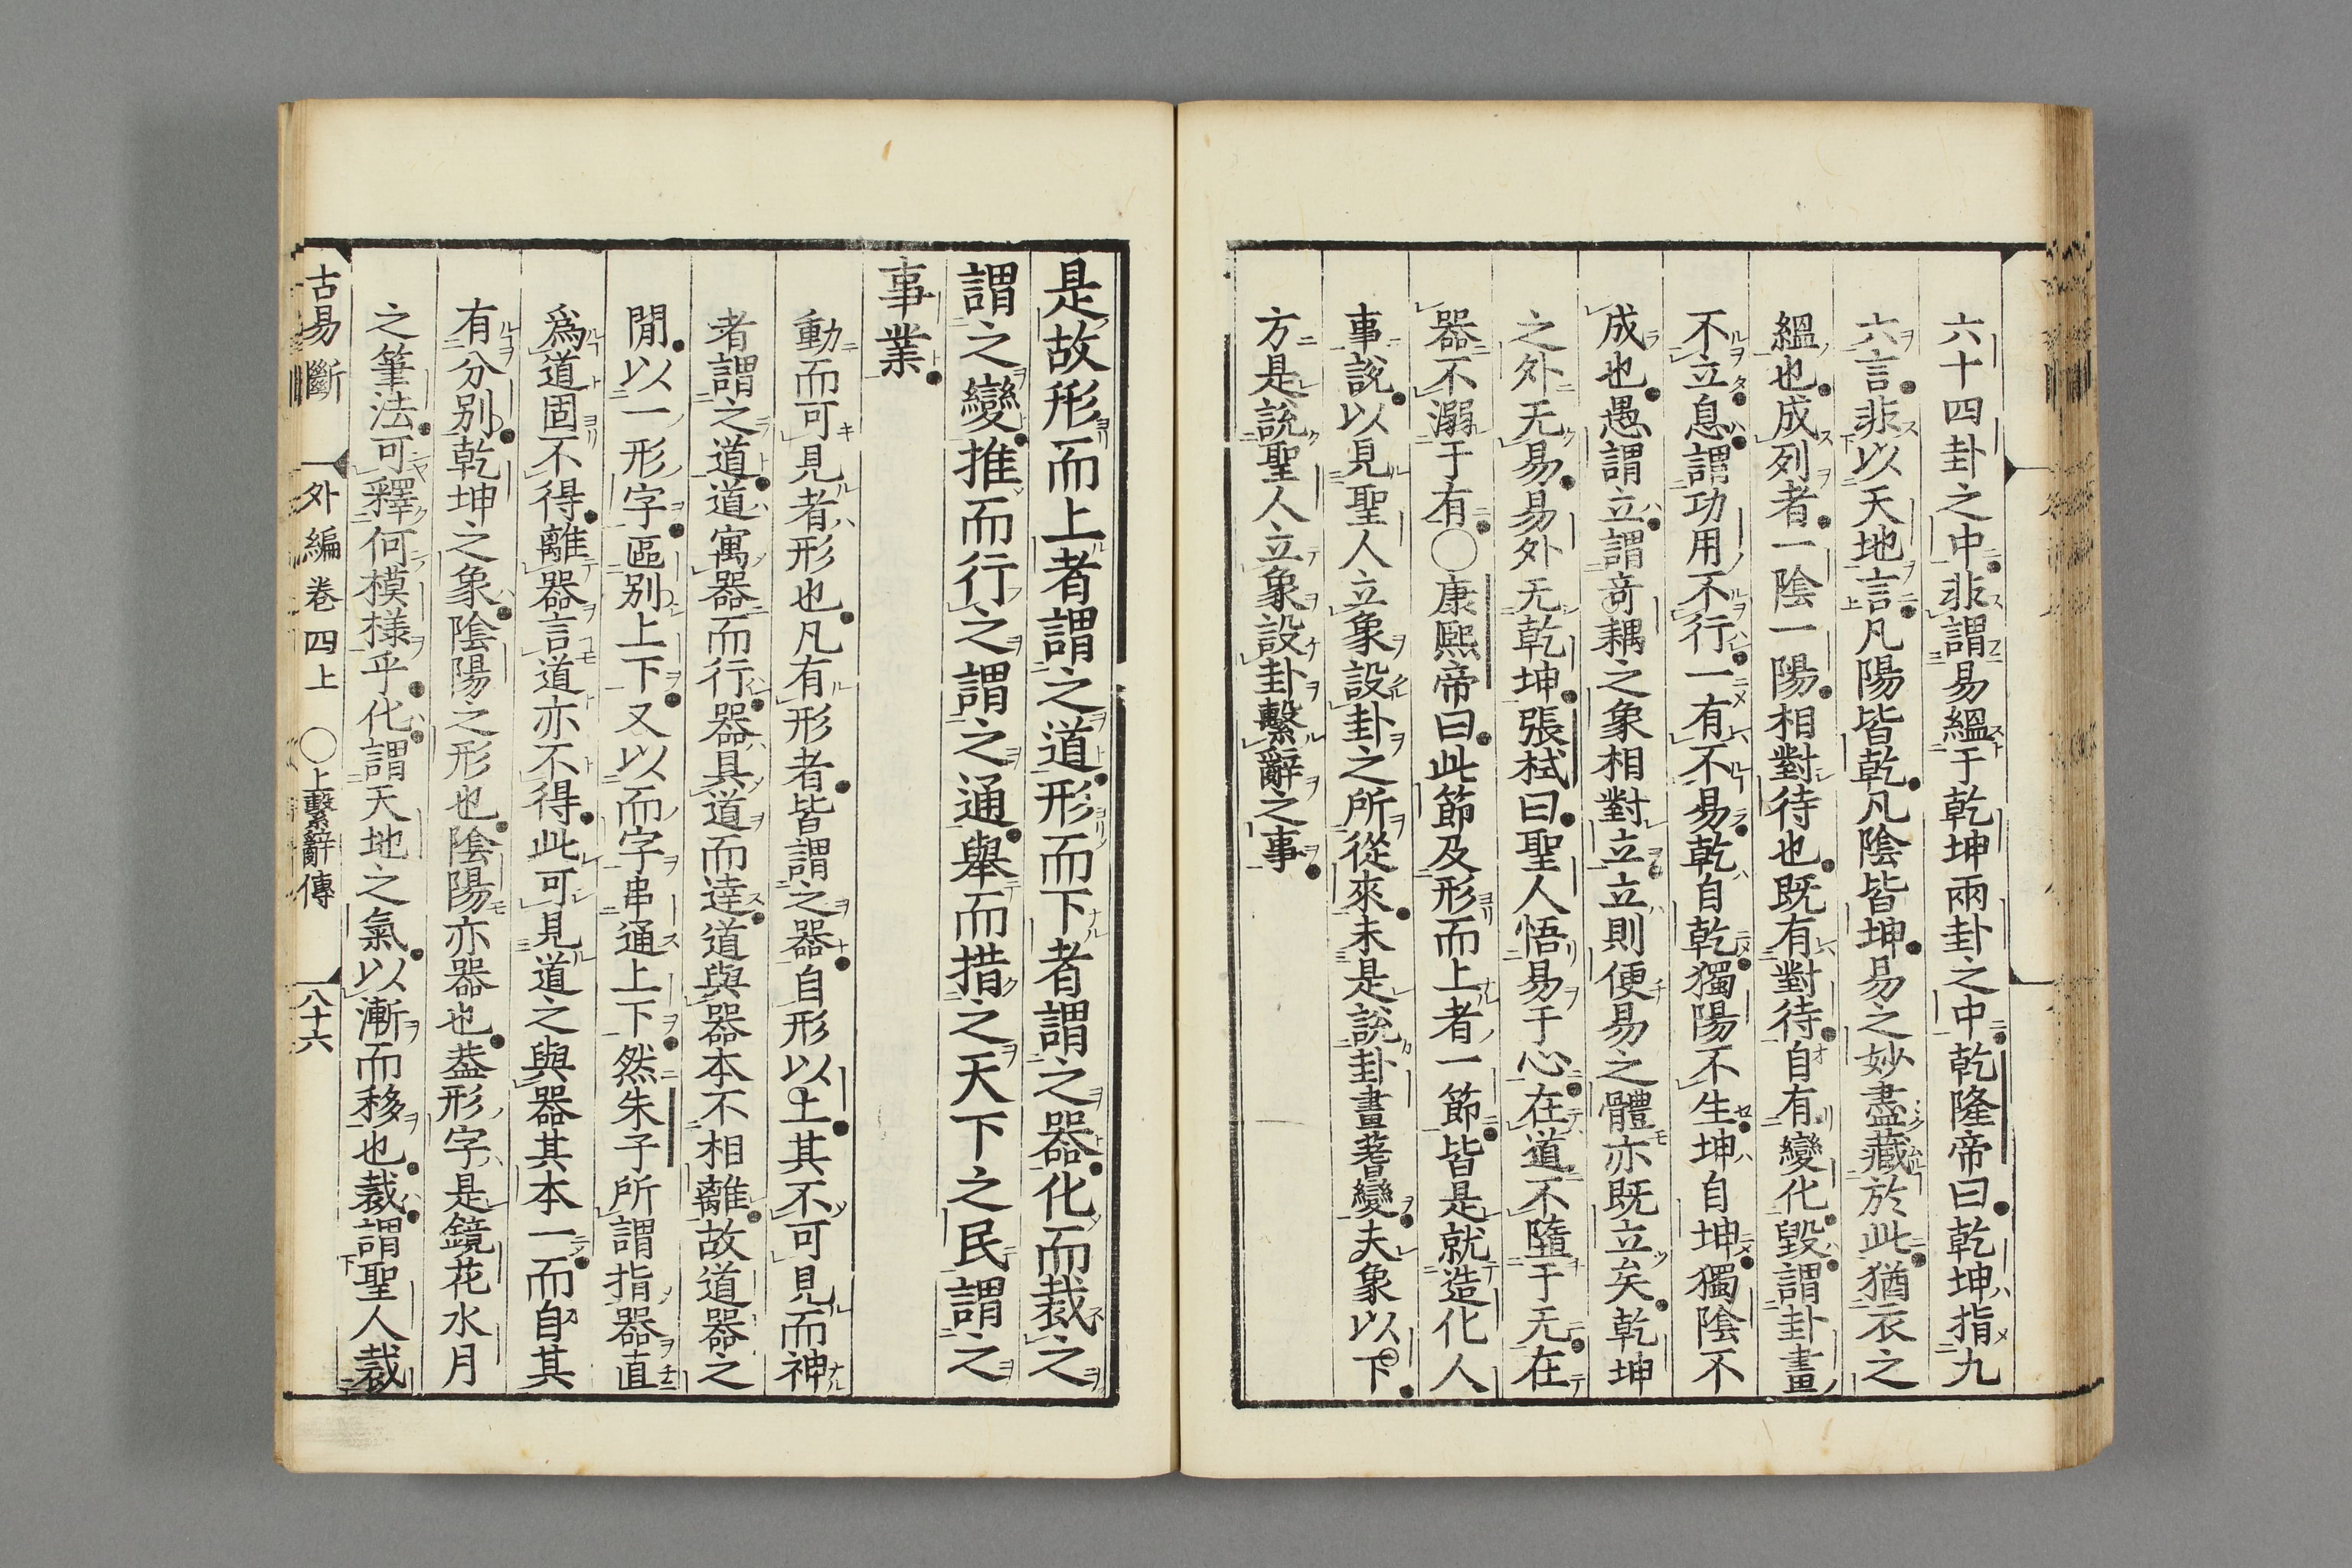 六十四卦之中非謂易緼于乾坤兩卦之中乾隆帝曰乾坤指九
六言非以天地言凡陽皆乾凡陰皆坤易之妙盡藏於此猶衣之
緼也成列者一陰一陽相對待也既有對待自有變化毀謂卦畫
不立息謂功用不行一有不易乾自乾獨陽不生坤自坤獨陰不
成也愚謂立謂奇耦之象相對立立則便易之體亦既立矣乾坤
之外无易易外无乾坤張栻曰聖人悟易于心在道不墮于无在
器不溺于有〇康熙帝曰此節及形而上者一節皆是就造化人
事說以見聖人立象設卦之所從來未是說卦畫蓍變夫象以下
方是說聖人立象設卦繫辭之事
是故形而上者謂之道形而下者謂之器化而裁之
謂之變推而行之謂之通舉而措之天下之民謂之
事業
動而可見者形也凡有形者皆謂之器自形以上其不可見而神
者謂之道道寓器而行器具道而達道與器本不相離故道器之
閒以一形字區別上下又以而字串通上下然朱子所謂指器直
爲道固不得離器言道亦不得此可見道之與器其本一而自其
有分別乾坤之象陰陽之形也陰陽亦器也葢形字是鏡花水月
之筆法可釋何模樣乎化謂天地之氣以漸而移也裁謂聖人裁
古易斷 外編卷四上 〇上繫辭傳 八十六